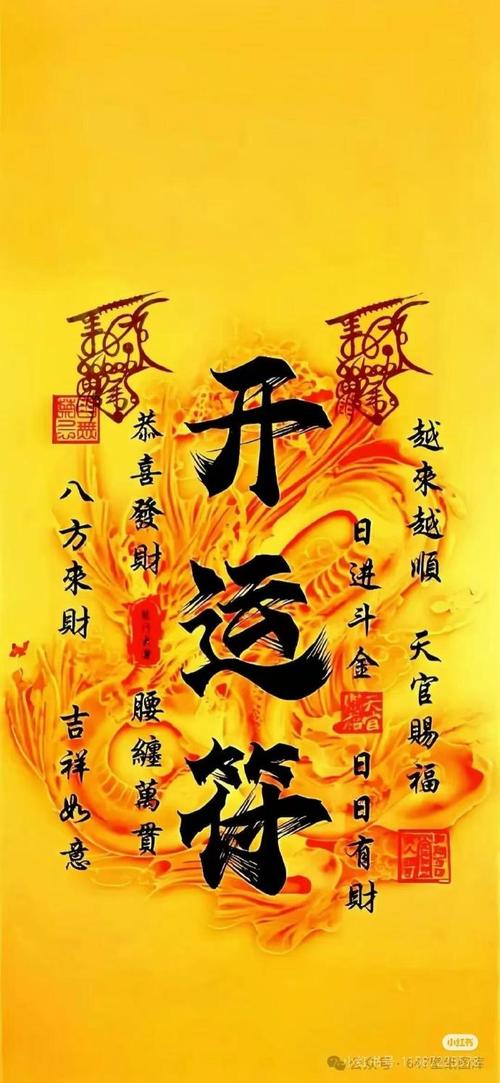 开运符
越來越順 天官賜福
日进斗金 日日有財
恭喜發財 腰纏萬貫
八方來財 吉祥如意
小红书
公众号